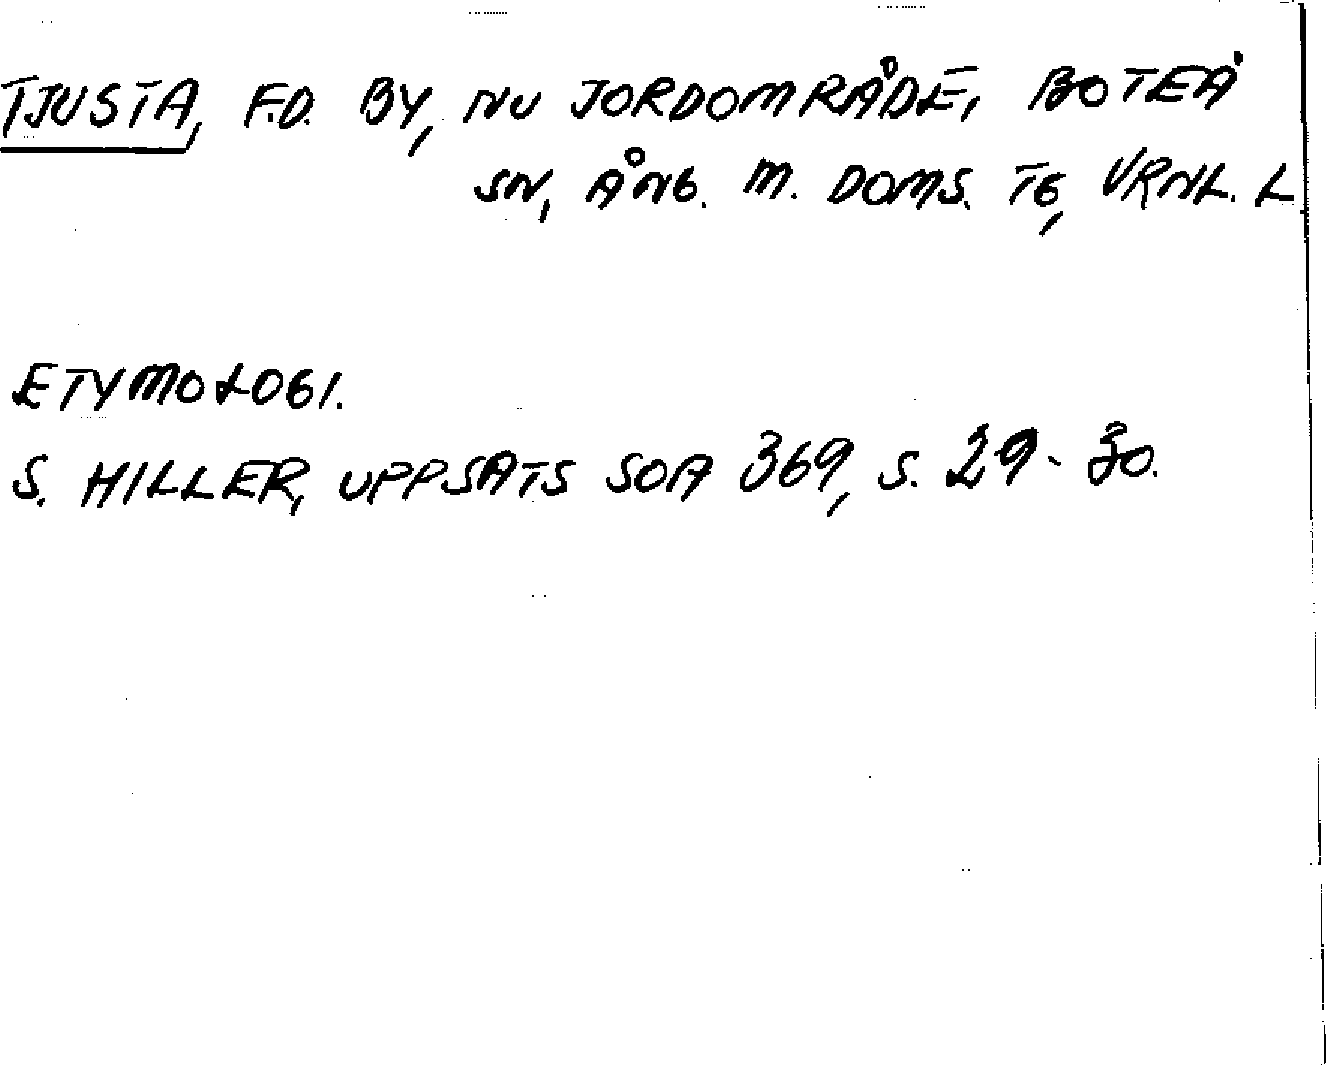 TJUSTA, F.D. BY, NU JORDOMRÅDE, BOTEÅ
SN, ÅNG. M. DOMS. TG, VRNL. L
ETYMOLOGI.
S. HILLER, UPPSATS SOA 369, S. 29-30.